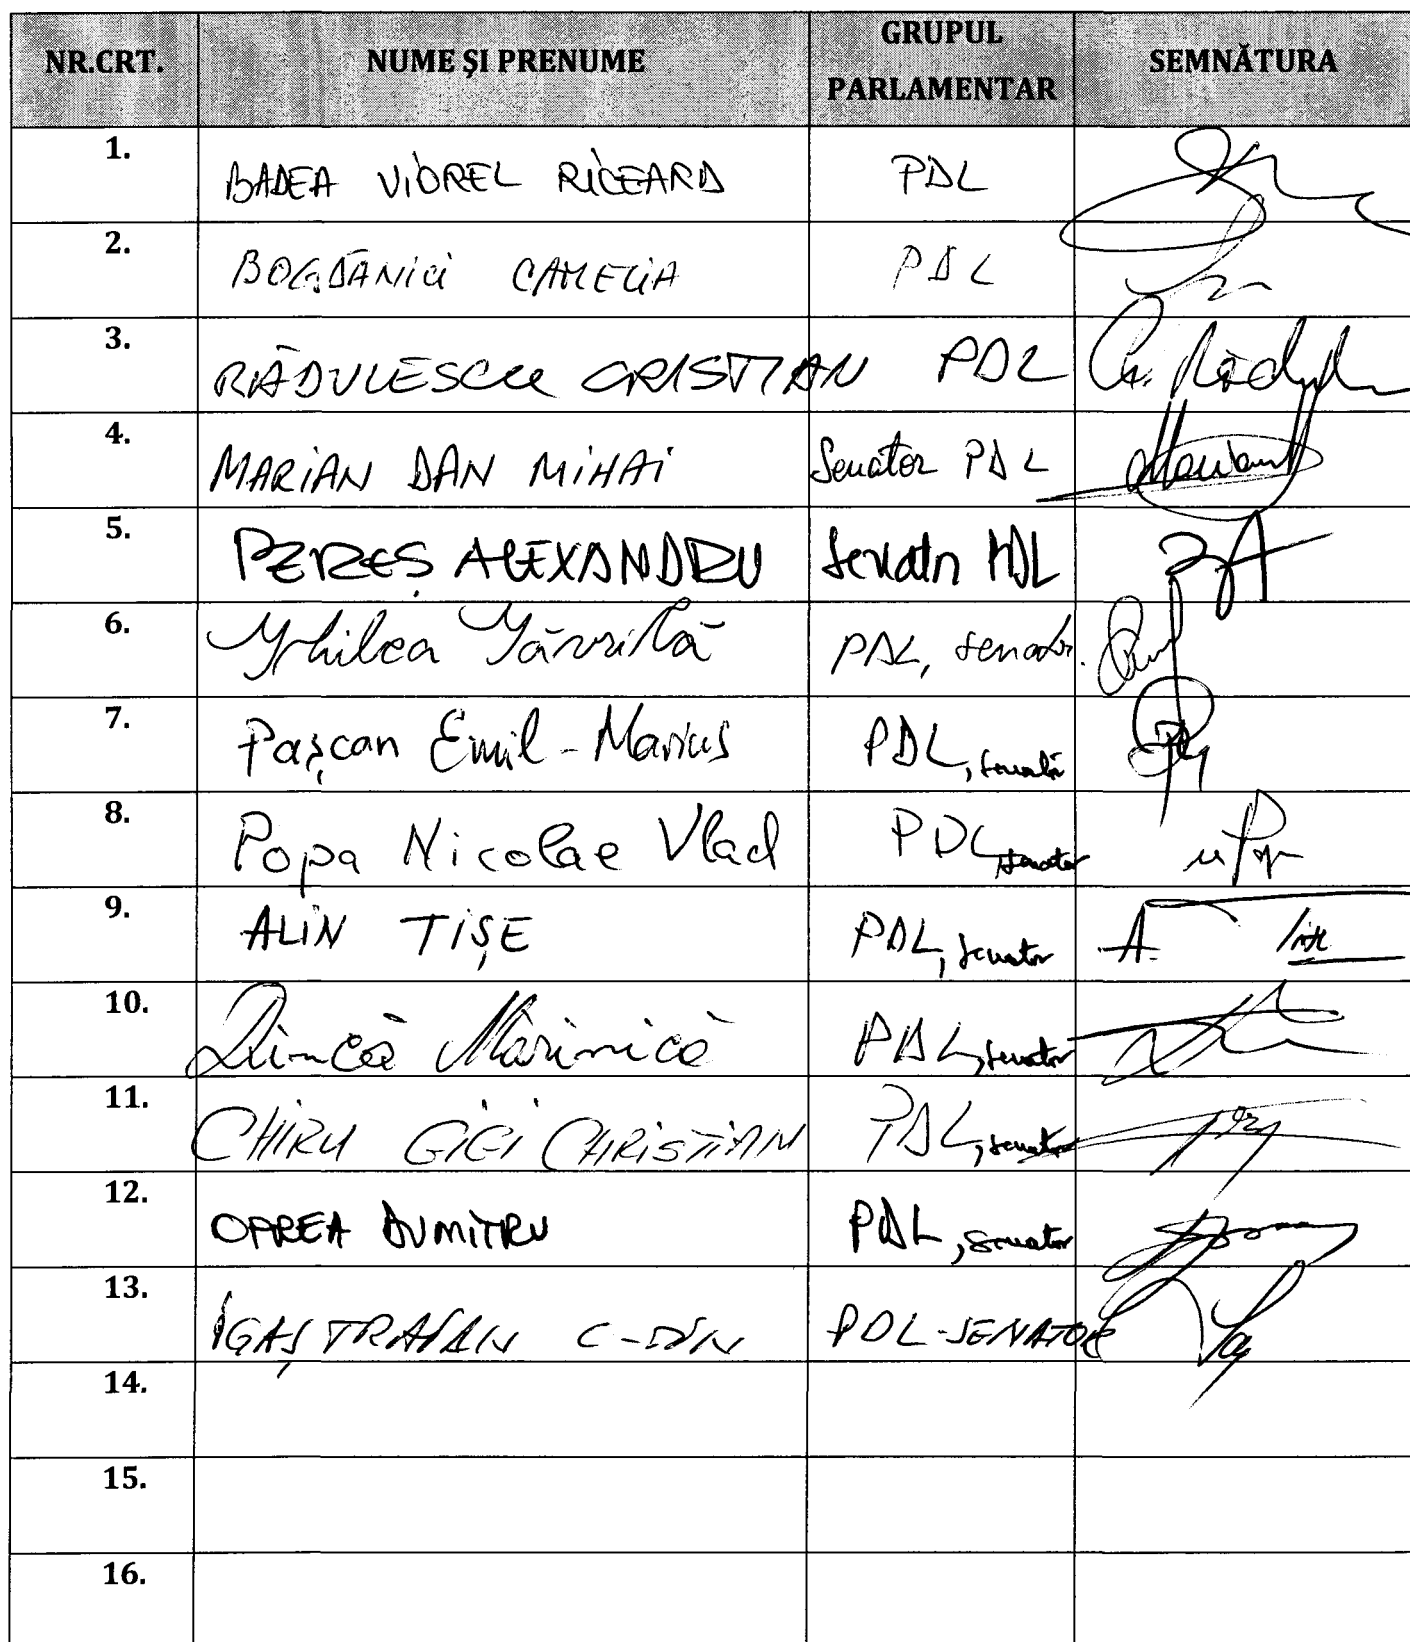 NR.CRT. NUME ȘI PRENUME GRUPUL PARLAMENTAR SEMNĂTURA
1. BADEA VIOREL RICEARD PDL
2. BOGDĂNICI CAMELIA PDL
3. RĂDULESCU CRISTIAN PDL
4. MARIAN DAN MIHAI Senator PDL
5. PEREȘ ALEXANDRU Senator PDL
6. Ghilea Găvrilă PDL, senator.
7. Pașcan Emil-Marius PDL, senator
8. Popa Nicolae Vlad PDL, senator
9. ALIN TIȘE PDL, senator
10. Dincă Mărinică PDL, senator
11. CHIRU GIGI CHRISTIAN PDL, senator
12. OPREA DUMITRU PDL, senator
13. IGAȘ TRAIAN C-DIN PDL-SENATOR
14.
15.
16.